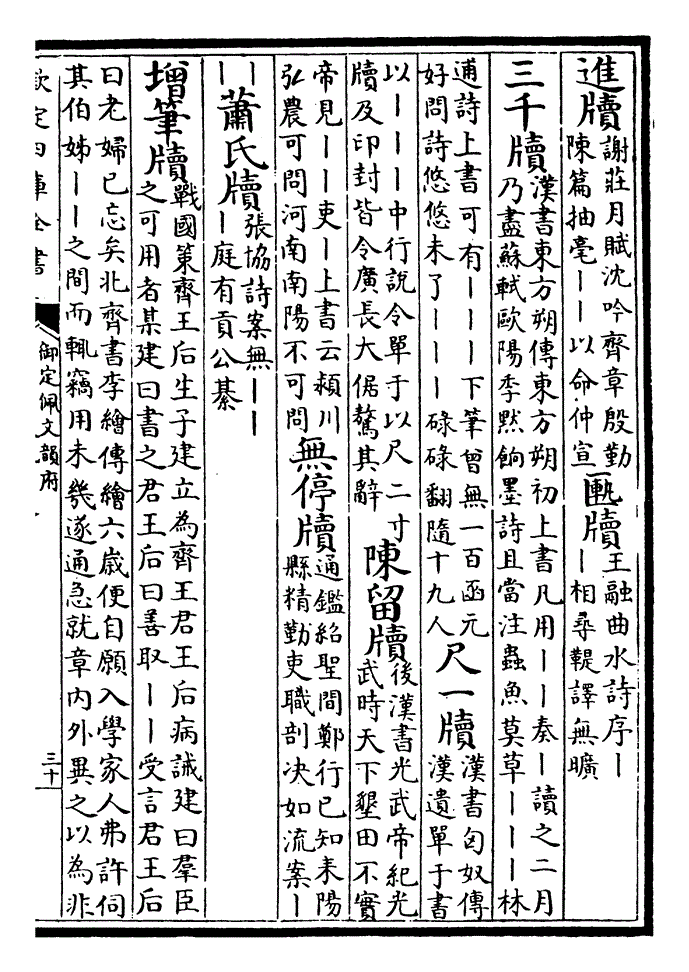 進牘
謝莊月賦沈吟齊章殷勤
陳篇抽毫丨丨以命仲宣
匭牘
王融曲水詩序丨
丨相尋鞮譯無曠
三千牘
漢書東方朔傳東方朔初上書凡用丨丨奏丨讀之二月
乃盡蘇軾歐陽季黙餉墨詩且當注蟲魚莫草丨丨丨林
逋詩上書可有丨丨丨下筆曾無一百函元
好問詩悠悠未了丨丨丨碌碌翻隨十九人
尺一牘
漢書匈奴傳
漢遺單于書
以丨丨丨中行說令單于以尺二寸
牘及印封皆令廣長大倨驁其辭
陳留牘
後漢書光武帝紀光
武時天下墾田不實
帝見丨丨吏丨上書云潁川
弘農可問河南南陽不可問
無停牘
通鑑紹聖間鄭行已知耒陽
縣精勤吏職剖决如流案丨
丨丨
蕭氏牘
張協詩案無丨丨
丨庭有貢公綦
增筆牘
戰國策齊王后生子建立為齊王君王后病誡建曰羣臣
之可用者某建曰書之君王后曰善取丨丨受言君王后
曰老婦已忘矣北齊書李繪傳繪六歳便自願入學家人弗許伺
其伯姊丨丨之間而輒竊用未幾遂通急就章内外異之以為非
欽定四庫全書
御定佩文韻府
三十